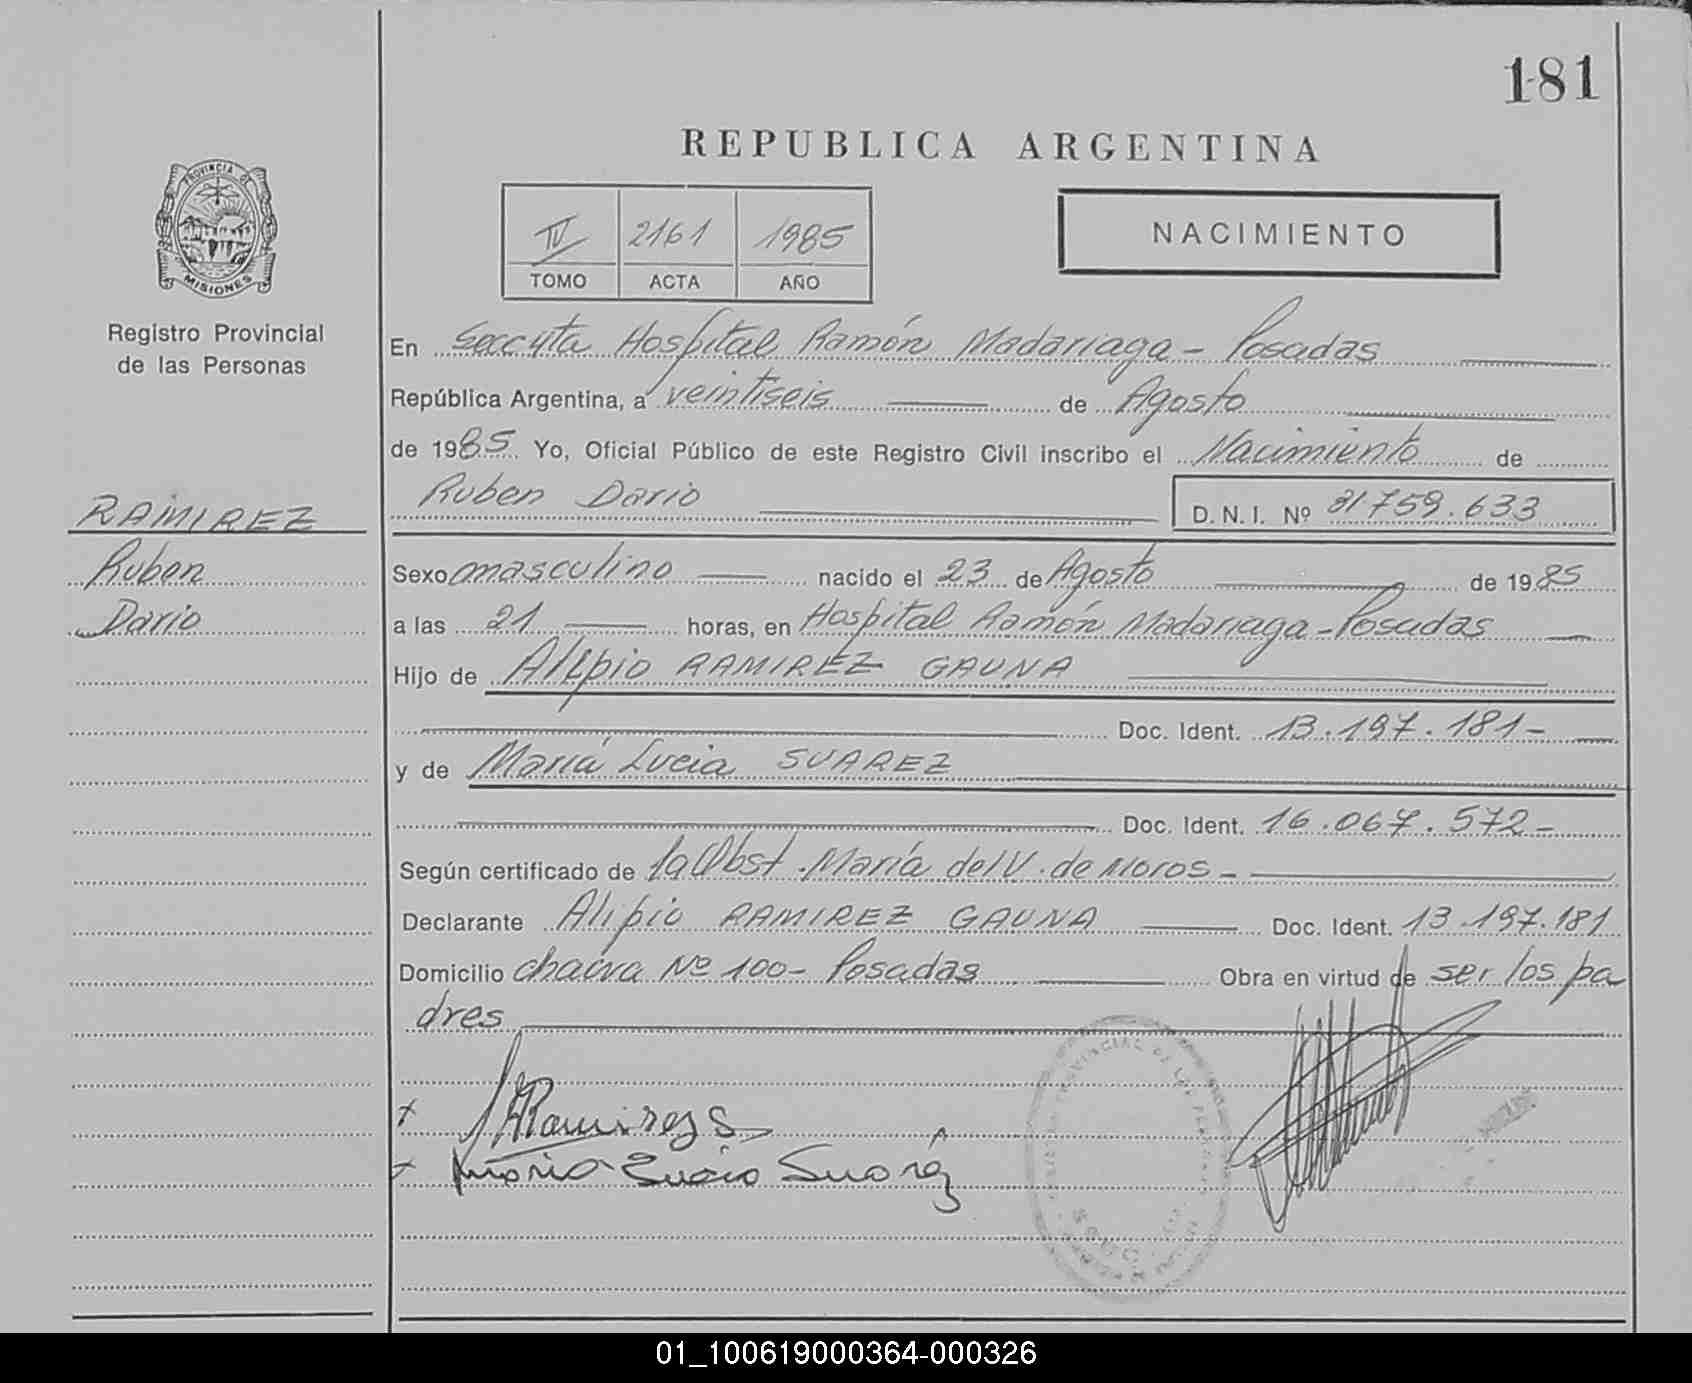 181
REPUBLICA ARGENTINA
PROVINCIA DE
MISIONES
Registro Provincial
de las Personas
IV 2161 1985
TOMO ACTA AÑO
NACIMIENTO
En Secc 4ta Hospital Ramón Madariaga - Posadas
República Argentina, a veintiseis de Agosto
de 1985 Yo, Oficial Público de este Registro Civil inscribo el Nacimiento de
Ruben Dario D.N.I. Nº 31.759.633
RAMIREZ
Ruben
Dario
Sexo masculino nacido el 23 de Agosto de 1985
a las 21 horas, en Hospital Ramón Madariaga - Posadas
Hijo de Alipio RAMIREZ GAUNA
Doc. Ident. 13.197.181-
y de María Lucia SUAREZ
Doc. Ident. 16.067.572-
Según certificado de la Obst. María del V. de Moros -
Declarante Alipio RAMIREZ GAUNA Doc. Ident. 13.197.181
Domicilio chacra Nº 100- Posadas Obra en virtud de ser los pa
dres
Ramirez G
Maria Lucia Suarez
01_100619000364-000326